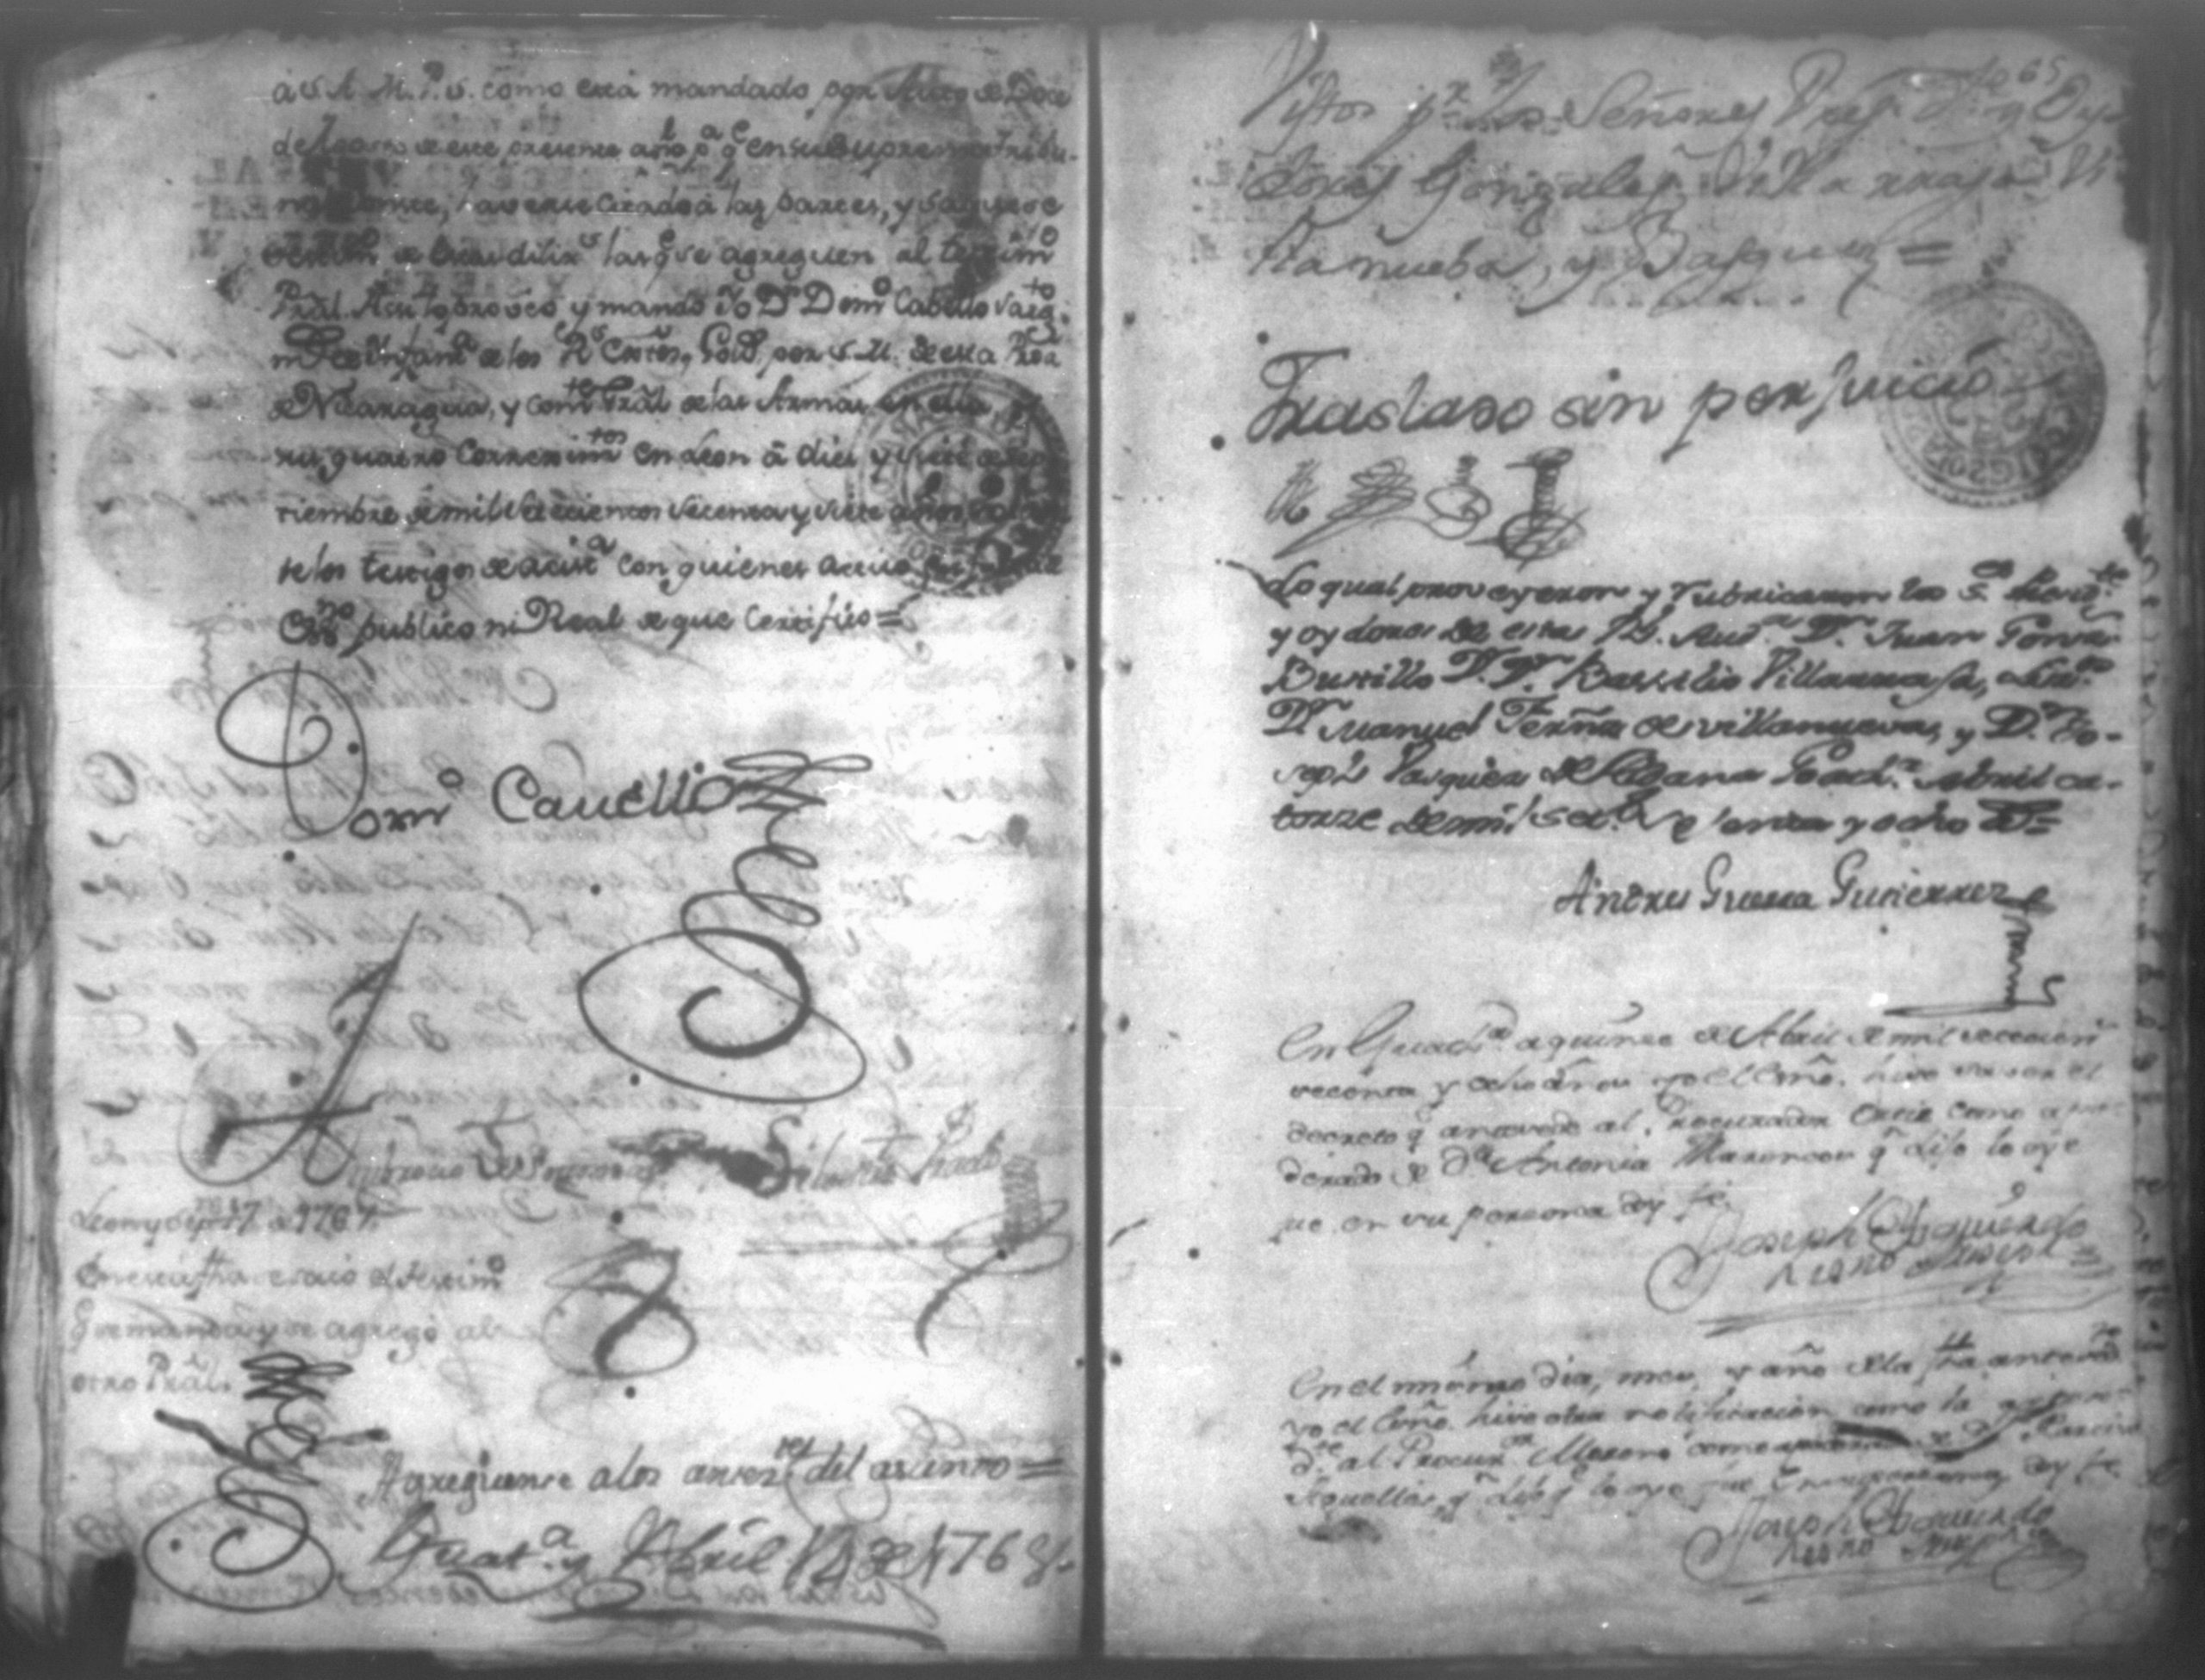 á S. A. M. P. S. como está mandado por Auto de Doce
de Agosto de este presente año pa. qe. en su Supremo Tribu-
nal conste, haverse citado á las partes, y saquese
testimo. de las dilixs. las qe. se agreguen al testimo.
Pral. Assi lo proveo y mando Yo Dn. Domo. Cabello Sargto.
mr. de Infana. de los Rs. Exctos, Govr. por S. M. de esta Proa.
de Nicaragua, y Comte. Gral de las Armas en ella, y
sus quatro Correximtos. en Leon á diez y siete de Sep-
tiembre de mil setecientos sesenta y siete años
se los testigos de asista. con quienes actuo
Esno. publico ni Real de que Certifico =
Domo. Cauello
Ambrosio
Silvestre Prado
Leon y Sepre. 17. de 1767.
En esta fha se saco el testimo.
qe se manda y se agregó al
otro Pral.
Agreguense a los anteztes. del asumpto =
Guata. y Abril 14 de 1768.
65
Vistos pr. los Señores Preste. y Oy-
dores Gonzalez, Villarrasa, Vi-
llanueba, y Basquez =
Traslado sin perjuicio
Lo qual proveyeron y rubricaron los Ss. Presidte.
y oydores de esta Rl. Auda. Dn. Juan Gonzs.
Bustillo Dn. Dn. Bassilio Villarrasa, Lizdo.
Dn. Manuel Ferñz de Villanueva, y Dn. Jo-
seph Vasquez de Aldana Guata. Abril ca-
torze de mil setts. sesenta y ocho as. =
Andres Guerra Gutierrez
En Guata. a quince de Abril de mil setecien
sesenta y ocho años yo el Esño. hise saver el
decreto qe antecede al Procurador Ortiz como apo-
derado de Da. Antonia qe dijo lo oye
fue en su persona doy fe.
Joseph Ysquierdo
En el mismo dia, mes, y año de la fha antecede
yo el Esño. hise otra notificacion como la
al Procurr. Moreno como
qe dijo lo oye fue en su persona doy fe
Joseph Ysquierdo